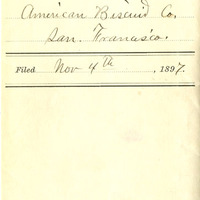 American Biscuit Co.
San. Francisco.
Filed Nov 4th, 1897.